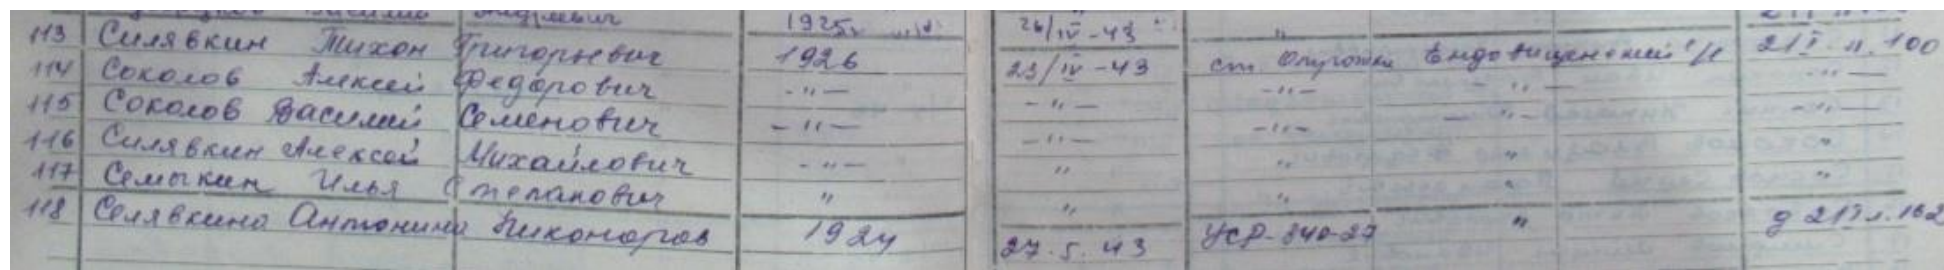 1925г. 26/IV-43 "
113 Силявкин Тихон Григорьевич 1926 23/IV-43 ст. с/п 21 I л. 100
114 Соколов Алексей Федорович -"- -"- -"- -"- -"-
115 Соколов Василий Семенович -"- -"- -"- -"- -"-
116 Силявкин Алексей Михайлович -"- " " " "
117 Семыкин Илья Степанович " " " " "
118 Селявкина Антонина Никоноров 1924 27.5.43 УСР-340-27 " д 21 I л. 162